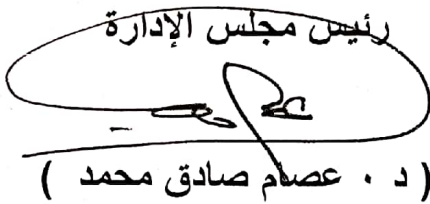 رئيس مجلس الإدارة
( د . عصام صادق محمد )